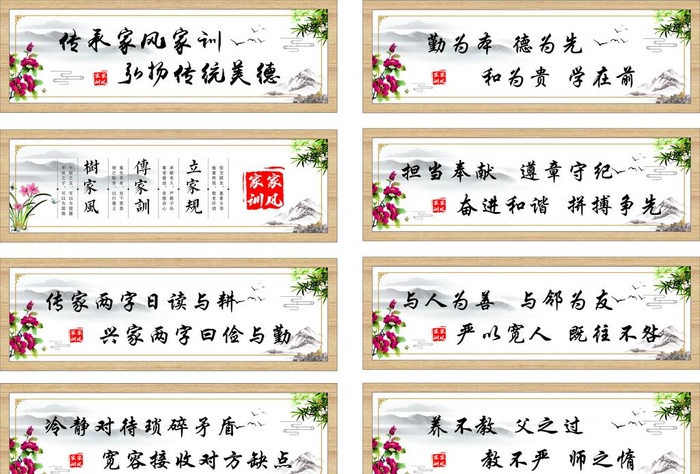 传承家风家训
弘扬传统美德
家风
家训
勤为本 德为先
和为贵 学在前
家风
家训
家风
家训
立家规
傳家訓
樹家風
担当奉献 遵章守纪
奋进和谐 拼搏争先
家风
家训
传家两字日读与耕
兴家两字曰俭与勤
家风
家训
与人为善 与邻为友
严以宽人 既往不咎
家风
家训
冷静对待琐碎矛盾
宽容接收对方缺点
家风
家训
养不教 父之过
教不严 师之惰
家风
家训